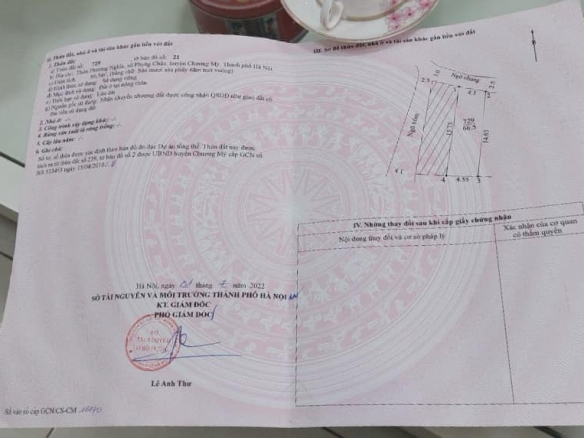 II. Thửa đất, nhà ở và tài sản khác gắn liền với đất
1. Thửa đất:
a) Thửa đất số: 729 tờ bản đồ số: 21
b) Địa chỉ: Thôn Phương Nghĩa, xã Phụng Châu, huyện Chương Mỹ, Thành phố Hà Nội
c) Diện tích: (bằng chữ: Sáu mươi sáu phẩy năm mét vuông)
d) Hình thức sử dụng: Sử dụng riêng
đ) Mục đích sử dụng: Đất ở tại nông thôn
e) Thời hạn sử dụng: Lâu dài
g) Nguồn gốc sử dụng: Nhận chuyển nhượng đất được công nhận QSDĐ như giao đất có
thu tiền sử dụng đất
2. Nhà ở: -/-
3. Công trình xây dựng khác: -/-
4. Rừng sản xuất là rừng trồng: -/-
5. Cây lâu năm: -/-
6. Ghi chú:
Số tờ, số thửa được xác định theo bản đồ đo đạc Dự án tổng thể. Thửa đất này được
tách ra từ thửa đất số 239, tờ bản đồ số 2 được UBND huyện Chương Mỹ cấp GCN số
III. Sơ đồ thửa đất, nhà ở và tài sản khác gắn liền với đất
Ngõ chung
2.5
4.3
Ngõ xóm
729
66.5
14.63
4 4.55 3
IV. Những thay đổi sau khi cấp giấy chứng nhận
Nội dung thay đổi và cơ sở pháp lý
Xác nhận của cơ quan
có thẩm quyền
Hà Nội, ngày tháng năm 2022
SỞ TÀI NGUYÊN VÀ MÔI TRƯỜNG THÀNH PHỐ HÀ NỘI
KT. GIÁM ĐỐC
PHÓ GIÁM ĐỐC
Lê Anh Thư
Số vào sổ cấp GCN:CS-CM